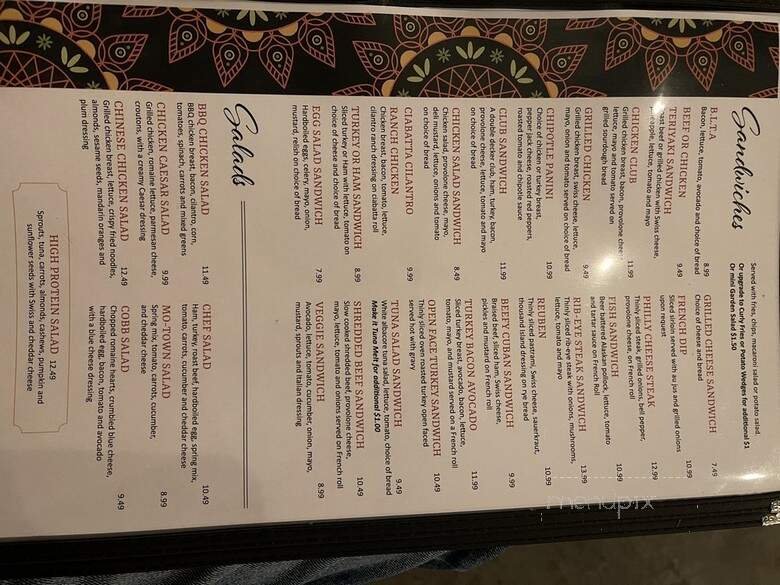 Sandwiches
Served with fries, chips, macaroni salad or potato salad.
Or upgrade to Curly Fries or Potato Wedges for additional $1
Or mini Garden Salad $1.50
B.L.T.A 8.99
Bacon, lettuce, tomato, avocado and choice of bread
BEEF OR CHICKEN
TERIYAKI SANDWICH 9.49
roast beef or grilled chicken with Swiss cheese,
pineapple, lettuce, tomato and mayo
CHICKEN CLUB 11.99
Grilled chicken breast, bacon, provolone cheese
lettuce, mayo and tomato served on
grilled sourdough bread
GRILLED CHICKEN 9.49
Grilled chicken breast, swiss cheese, lettuce,
mayo, onion and tomato served on choice of bread
CHIPOTLE PANINI 10.99
Choice of chicken or turkey breast,
pepper jack cheese, roasted red peppers,
roasted tomato and chipotle sauce
CLUB SANDWICH 11.99
A double decker club, ham, turkey, bacon,
provolone cheese, lettuce, tomato and mayo
on choice of bread
CHICKEN SALAD SANDWICH 8.49
Chicken salad, provolone cheese, mayo,
deli mustard, lettuce, onions and tomato
on choice of bread
CIABATTA CILANTRO
RANCH CHICKEN 9.99
Chicken breast, bacon, tomato, lettuce,
cilantro ranch dressing on ciabatta roll
TURKEY OR HAM SANDWICH 8.99
Sliced turkey or Ham with lettuce, tomato on
choice of cheese and choice of bread
EGG SALAD SANDWICH 7.99
Hardboiled eggs, celery, mayo, onion,
mustard, relish on choice of bread
GRILLED CHEESE SANDWICH 7.49
Choice of cheese and bread
FRENCH DIP 10.99
Sliced sirloin served with au jus and grilled onions
upon request
PHILLY CHEESE STEAK 12.99
Thinly sliced steak, grilled onions, bell pepper,
provolone cheese, on French roll
FISH SANDWICH 10.99
Beer Battered Alaskan pollock, lettuce, tomato
and tartar sauce on French Roll
RIB-EYE STEAK SANDWICH 13.99
Thinly sliced rib-eye steak with onions, mushrooms,
lettuce, tomato and mayo
REUBEN 10.99
Thinly sliced pastrami, Swiss cheese, sauerkraut,
thousand island dressing on rye bread
BEEFY CUBAN SANDWICH 9.99
Braised beef, sliced ham, Swiss cheese,
pickles and mustard on French roll
TURKEY BACON AVOCADO 11.99
Sliced turkey breast, avocado, bacon, lettuce,
tomato, mayo, and mustard served on a French roll
OPEN FACE TURKEY SANDWICH 10.49
Thinly sliced oven roasted turkey open faced
served hot with gravy
TUNA SALAD SANDWICH 9.49
White albacore tuna salad, lettuce, tomato, choice of bread
Make it Tuna Melt for additional $1.00
SHREDDED BEEF SANDWICH 10.49
Slow cooked shredded beef, provolone cheese,
mayo, lettuce, tomato and onions served on French roll
VEGGIE SANDWICH 8.99
Avocado, lettuce, tomato, cucumber, onion, mayo,
mustard, sprouts and Italian dressing
Salads
BBQ CHICKEN SALAD 11.49
BBQ chicken breast, bacon, cilantro, corn,
tomatoes, spinach, carrots and mixed greens
CHICKEN CAESAR SALAD 9.99
Grilled chicken, romaine lettuce, permesan cheese,
croutons, with a creamy Caesar dressing
CHINESE CHICKEN SALAD 12.49
Grilled chicken breast, lettuce, crispy fried noodles,
almonds, sesame seeds, mandarin oranges and
plum dressing
CHEF SALAD 10.49
Ham, turkey, roast beef, hardboiled egg, spring mix,
tomato, carrots, cucumber and cheddar cheese
MO TOWN SALAD 8.99
Spring mix, tomato, carrots, cucumber,
and cheddar cheese
COBB SALAD 9.49
Chopped romaine hearts, crumbled blue cheese,
hardboiled egg, bacon, tomato and avocado
with a blue cheese dressing
HIGH PROTEIN SALAD 12.49
Sprouts, tuna, carrots, almonds, cashews, pumpkin and
sunflower seeds with Swiss and cheddar cheese
menupix